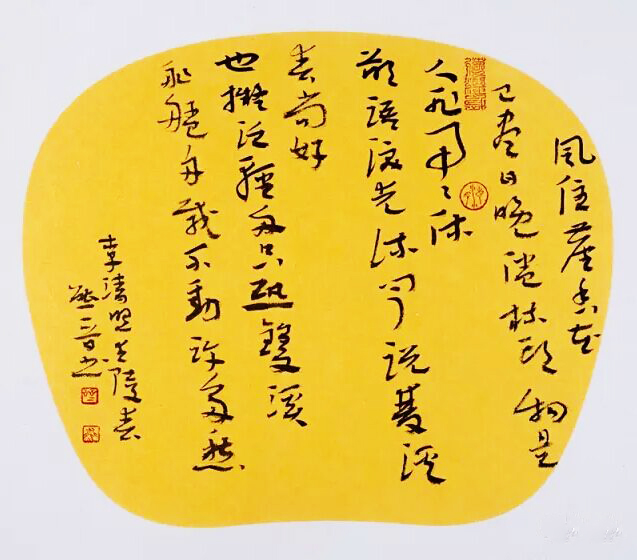 風住塵香花
已盡日晚倦梳頭物是
人非事々休
欲語淚先流聞說雙溪
春尚好
也擬泛輕舟只恐雙溪
舴艋舟載不動許多愁
李清照武陵春